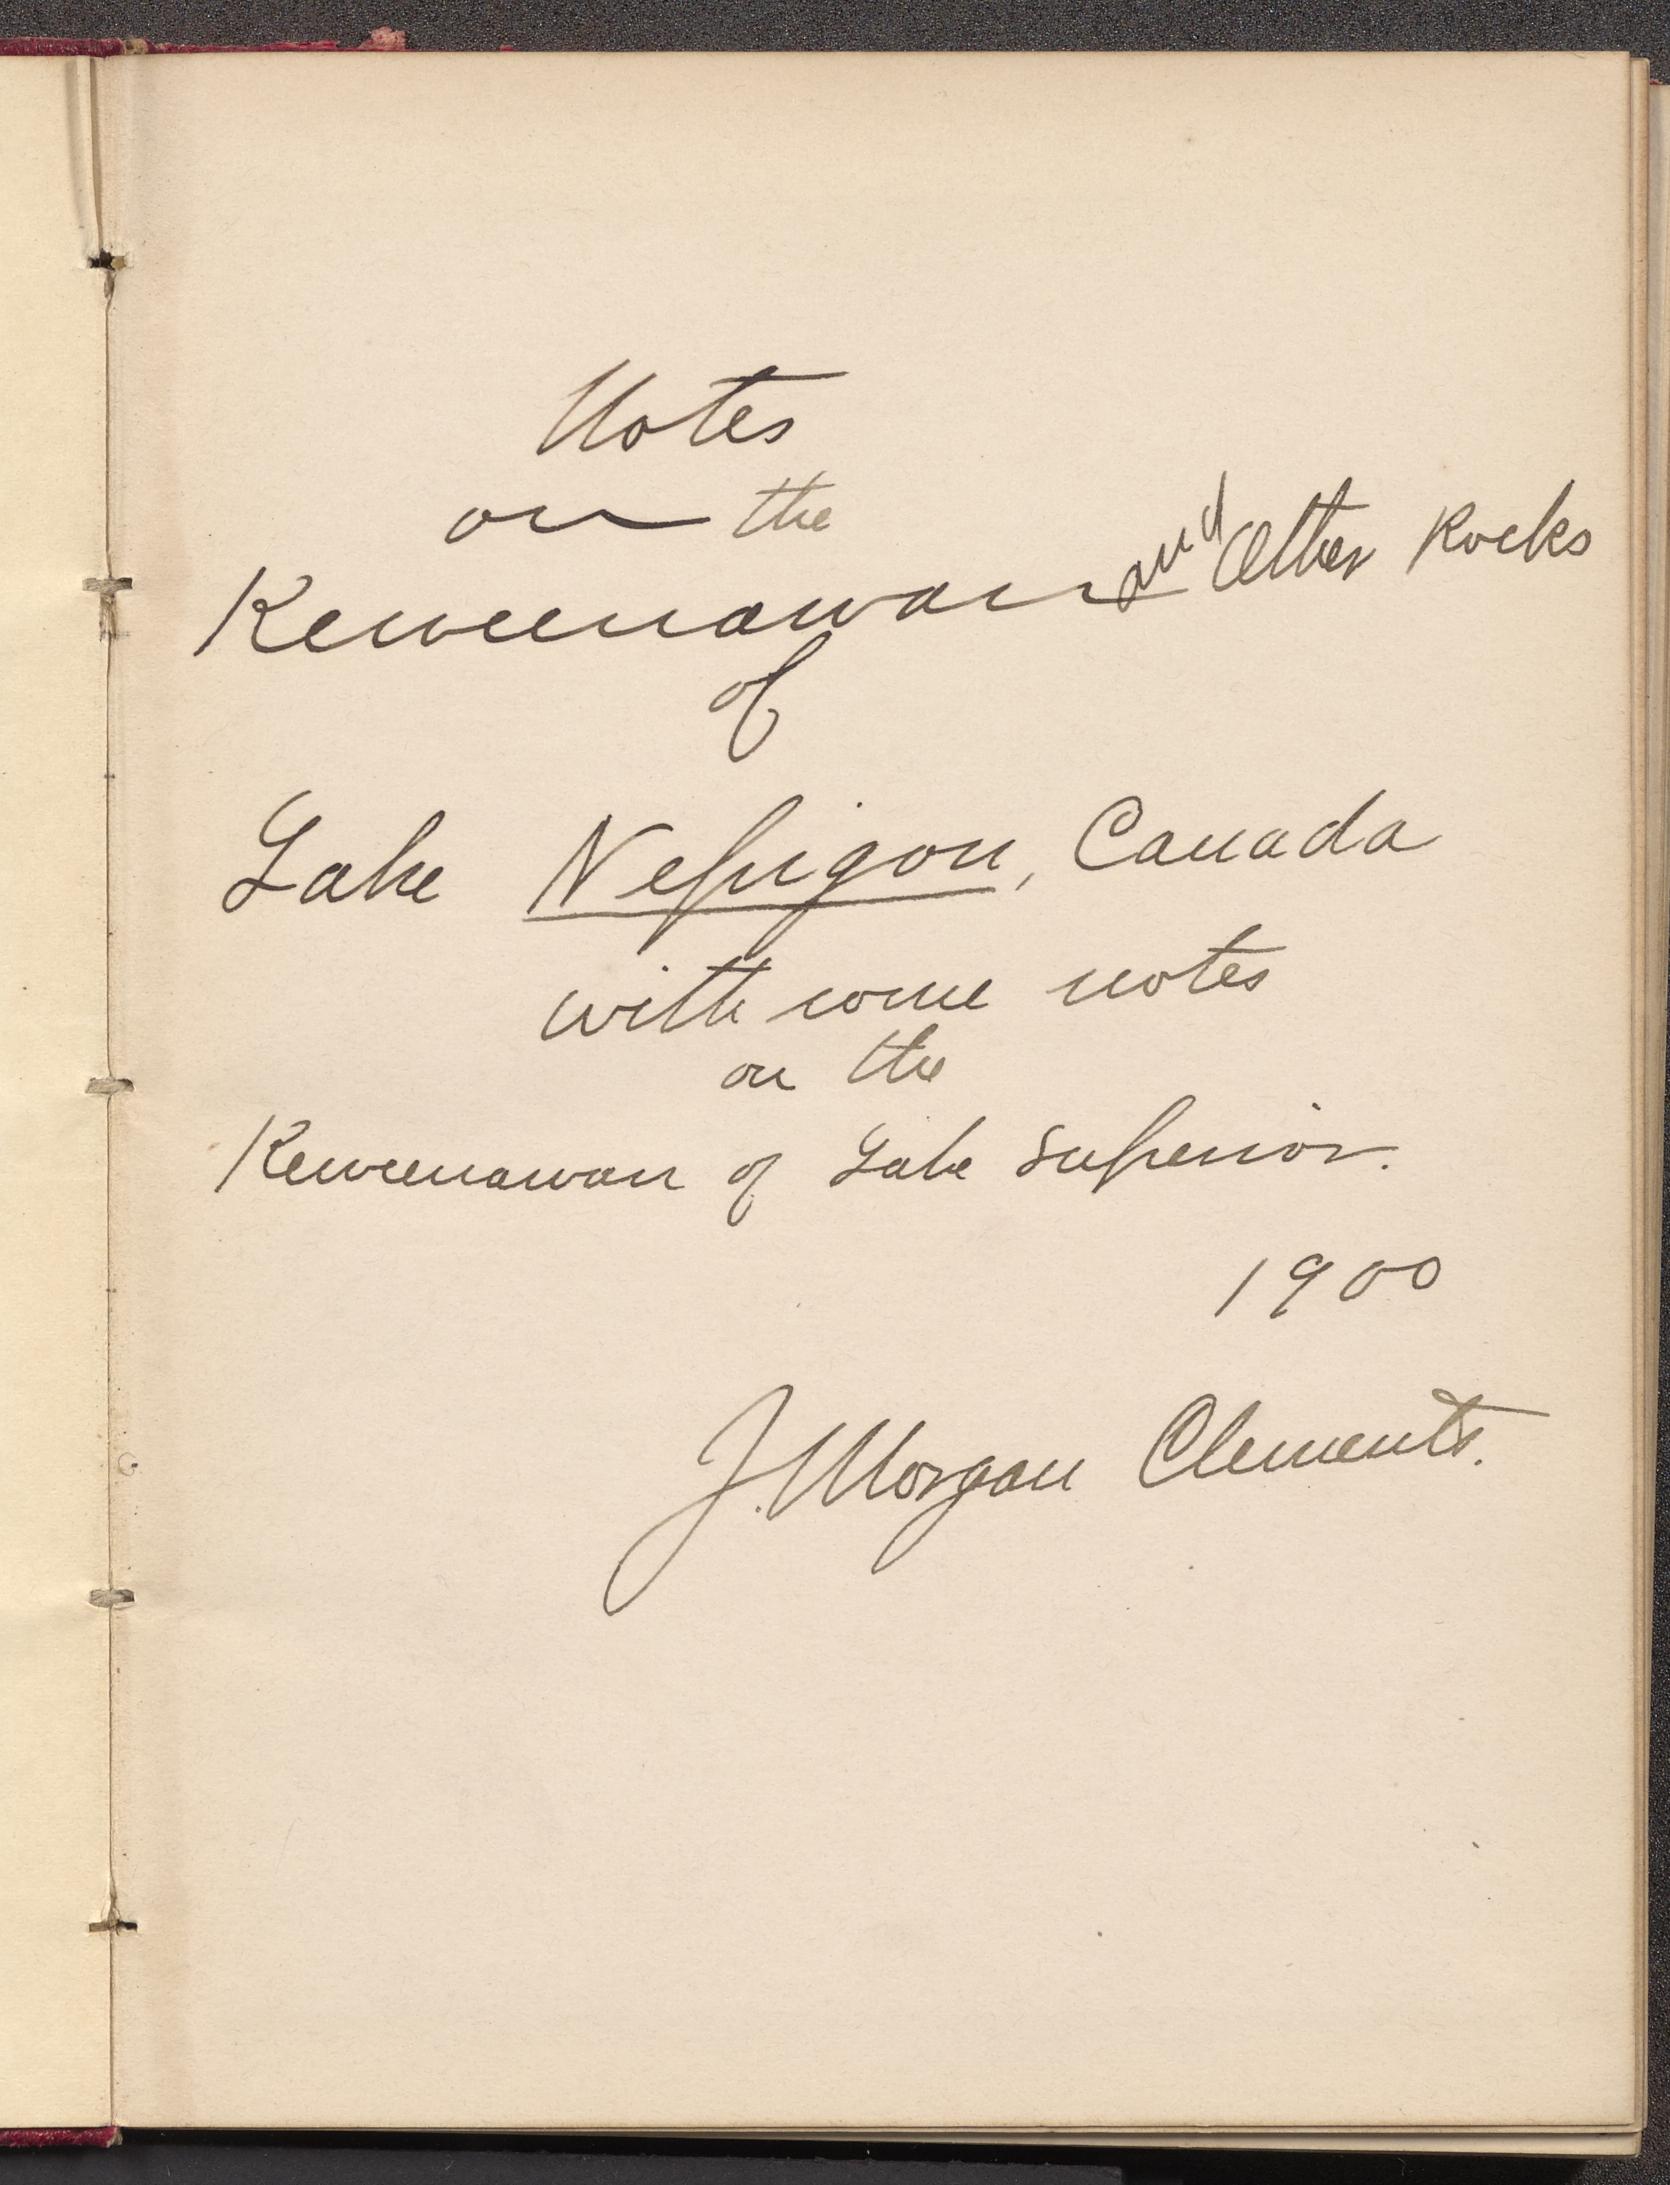 Notes
on the
Keweenawan and Other Rocks
of
Lake Nepigon, Canada
with some notes
on the
Keweenawan of Lake Superior.
1900
J. Morgan Clements.